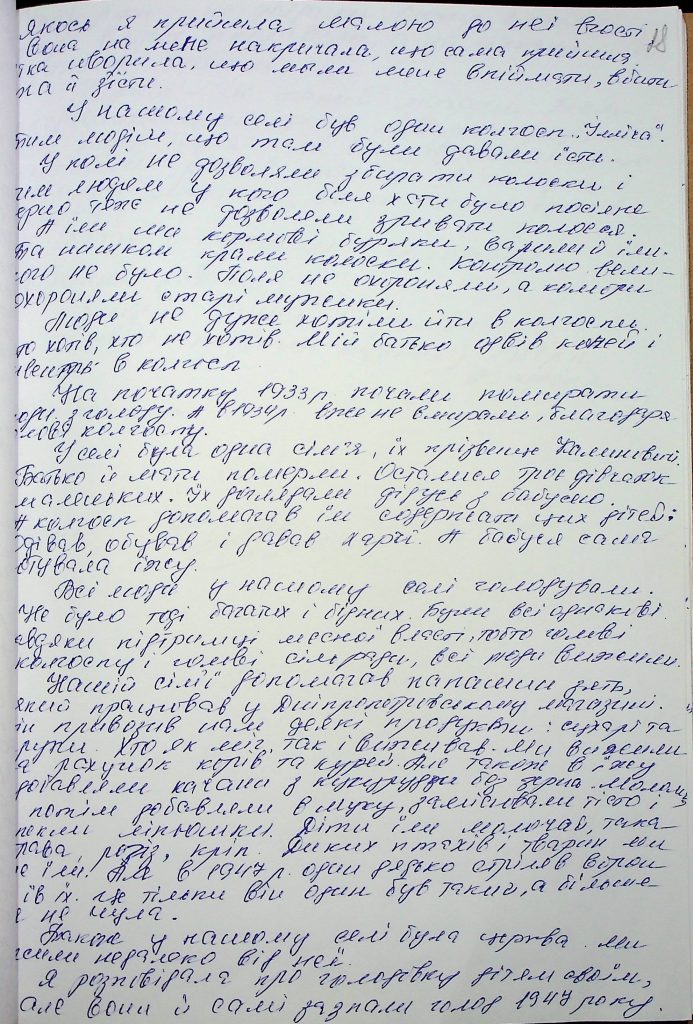 якось я прийшла малою до неї в гості
вона на мене накричала, що сама прийшла,
тка говорила, що мали мене впіймати, вбити
та й зїсти.
28
У нашому селі був один колгосп „Ілліча".
тим людям, що там були давали їсти.
У полі не дозволяли збирати колоски і
тим людям у кого біля хати було посіяне
ерно теж не дозволяли зривати колосся.
А їли ми кормові буряки, варили й їли.
Та нишком крали колоски. Контролю вели-
ого не було. Поля не охороняли, а комори
охороняли старі мужики.
Люди не дуже хотіли йти в колгоспи.
то хотів, хто не хотів. Мій батько одвів коней і
в колгосп.
На початку 1933 р почали помирати
юди з голоду. А в 1934 р. вже не вмирали, благодаря
колгоспу.
У селі була одна сім'я, їх прізвище Калиновий.
Батько й мати померли. Осталися троє дівчаток
маленьких. Їх доглядали дідусь з бабусею.
А колгосп допомагав їм содержати цих дітей:
одівав, обував і давав харчі. А бабуся сама
отувала їжу.
Всі люди у нашому селі голодували.
Не було тоді багатих і бідних. Були всі однакові.
авдяки підтримці месної власті, тобто голові
колгоспу і голові сільради, всі люди вижили.
Нашій сім'ї допомагав папашин зять,
який працював у Дніпропетровському магазині.
ін привозив нам деякі продукти: сухарі та
крупи. Хто як міг, так і виживав. Ми вижили
а рахунок корів та курей. Але також в їжу
добавляли качани з кукурудзи без зерна. Мололи,
потім добавляли в муку, замішували тісто і
пекли ліпьошки. Діти їли молочай, така
трава, рогіз, кріп. Диких птахів і тварин ми
не їли. Ал в 1947 р. один дядько стріляв ворон
і їв їх. Це тільки він один був такий, а більше
я не чула.
Також у нашому селі була церква. Ми
жили недалеко від неї.
Я розповідала про голодовку дітям своїм,
але вони й самі зазнали голод 1947 року.